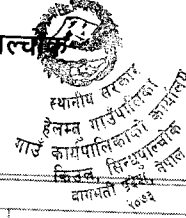 ल्चोक
स्थानीय सरकार
हेलम्बु गाउँपालिका
गाउँ कार्यपालिकाको कार्यालय
सिन्धुपाल्चोक
बागमती प्रदेश, नेपाल
२०७३